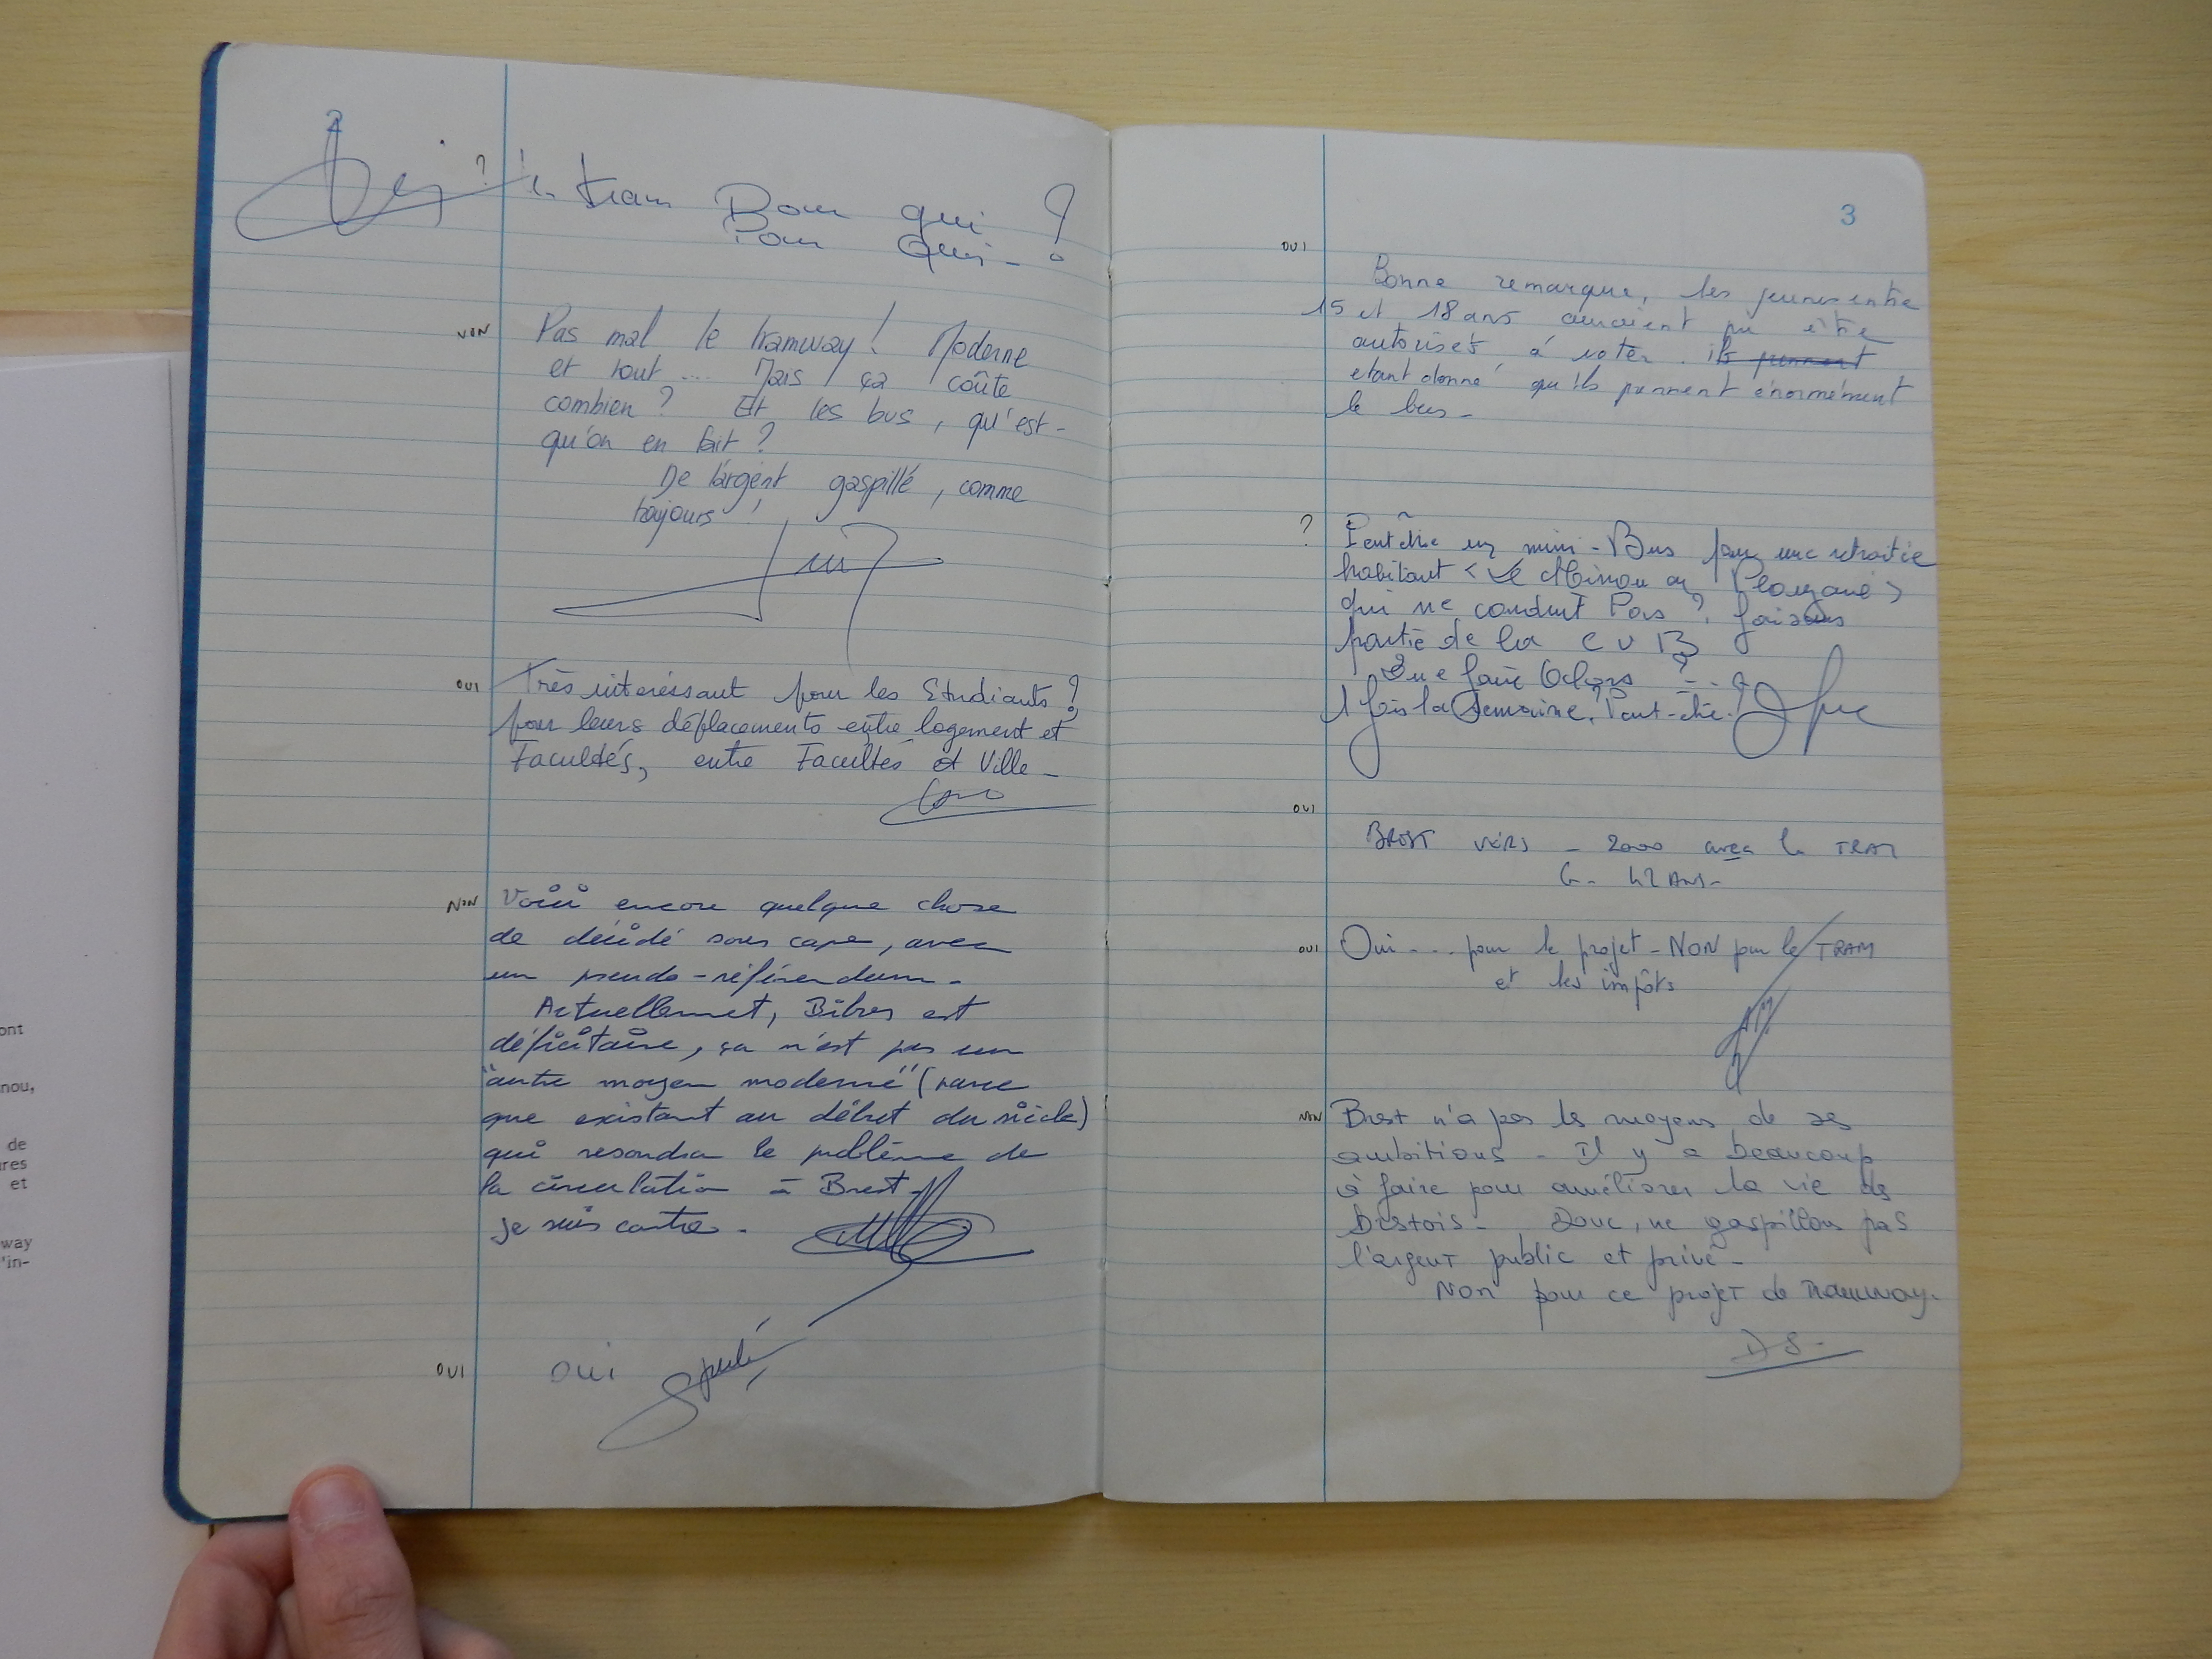 2
? le tram Pour qui ?
Pour Qui - ?
NON Pas mal le tramway ! Moderne
et tout ... Mais ça coûte
combien ? Et les bus, qu'est-
qu'on en fait ?
De l'argent gaspillé, comme
toujours !
OUI Très intéressant pour les Etudiants !
pour leurs déplacements entre logement et
Facultés, entre Facultés et Ville -
NON Voici encore quelque chose
de décidé sous cape, avec
un pseudo-référendum.
Actuellement, Bibus est
déficitaire, ça n'est pas un
"autre moyen moderne" (parce
que existant au début du siècle)
qui resoudra le problème de
la circulation à Brest.
je suis contre.
OUI oui
ont
nou,
de
res
et
way
'in-
3
OUI
Bonne remarque, les jeunes entre
15 et 18 ans auraient pu être
autorisés à voter. ils prennent
etant donné qu'ils prennent énormément
le bus -
? Peut être un mini-Bus pour une retraitée
habitant < Le Minou en Plouzané >
qui ne conduit Pas ? faisons
partie de la C U B
Que faire Alors ? - . .
1 fois la Semaine, Peut-être.
OUI
BREST VERS - 2000 avec le TRAM
G - 42 Ans -
OUI Oui - . . . pour le projet - NON pour le TRAM
et les impôts
NON Brest n'a pas les moyens de ses
ambitions - Il y a beaucoup
à faire pour améliorer la vie des
brestois - Donc, ne gaspillons pas
l'argent public et privé -
Non pour ce projet de Tramway.
D S -